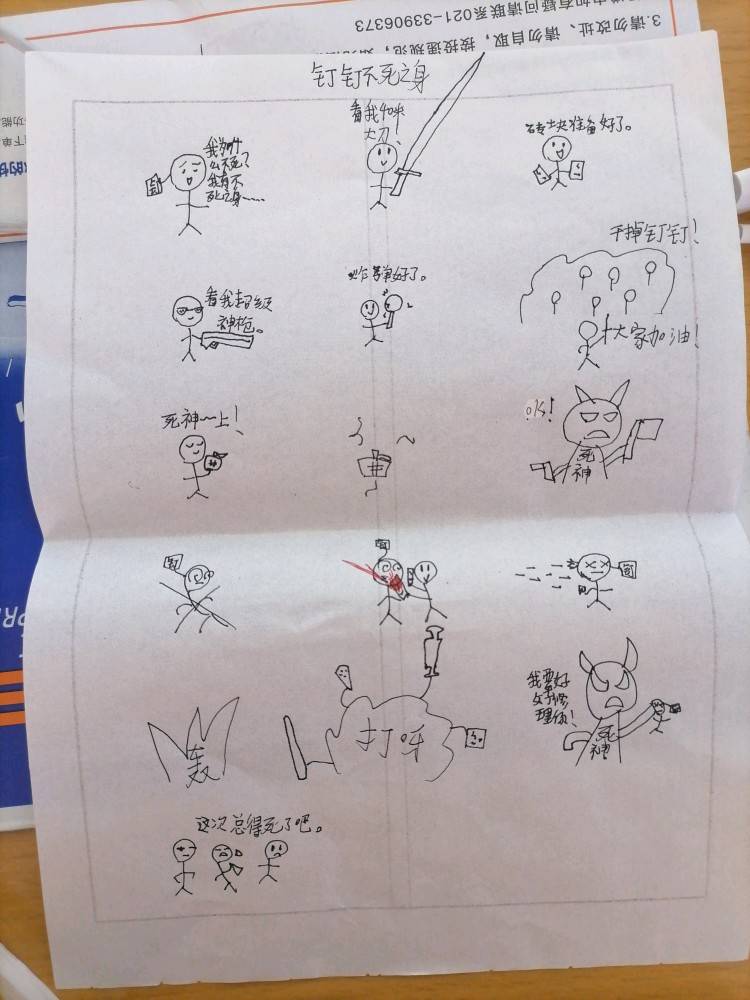 3.请勿改址、请勿自取，
联系021-33906373
钉钉不死之身
我为什
么不死？
我有不
死之身……
看我40米
大刀！
砖块准备好了。
看我超级
神枪。
炸弹好了。
干掉钉钉！
大家加油！
死神~上！
OK！
死
神
钉
钉
轰
打呀
我要好
好修
理你！
死
神
这次总得死了吧。